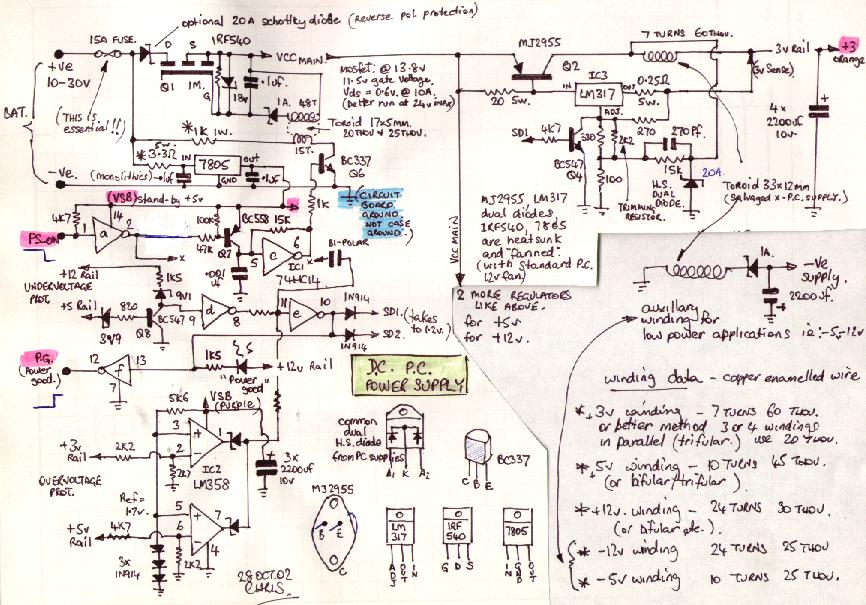 optional 20A schottky diode (Reverse pol. protection)
15A FUSE.
+ve
10-30V
BAT.
(THIS is essential!!)
-ve.
D S
IRF540
Q1 1M.
G
18v
.1uF.
1A. 48T
Toroid 17x5mm.
20THOU & 25THOU.
15T.
VCC MAIN
Mosfet: @ 13.8v
11.5v gate voltage.
Vds = 0.6v @ 10A.
(better run at 24v in)
*1K 1W.
5w.
*3.3Ω
IN 7805 out
GND
(monolithics) .1uF
.1uF
BC337
Q6
1K
CIRCUIT
BOARD
GROUND
NOT CASE
GROUND.
(VSB) stand-by +5v
4K7
PS_ON
1 a 2
14
x
100K
47K
BC558
Q7
15K
5 c 6
IC1
74HC14
BI-POLAR
x
+12v Rail
UNDERVOLTAGE
PROT.
1K5
9v1
+5 Rail
820
3v9
BC547
Q8
9 d 8
11 e 10
1N914
1N914
SD1. (takes
to 1.2v.)
SD2.
P.G.
(Power
good.)
12 f 13
7
1K5
"Power
good"
+12v Rail
5K6
VSB
(PURPLE)
3
2
1
IC2
LM358
+3v
Rail
2K2
2K7
OVERVOLTAGE
PROT.
Ref =
1.7v.
+5v
Rail
4K7
5
6
7
4
2K2
3x
1N914
3x
2200uF
10v
28 OCT. 02
CHRIS.
D.C. P.C.
POWER SUPPLY
common
dual
H.S. diode
from PC supplies
A1 K A2
BC337
C B E
MJ2955
B E
C
LM
317
ADJ OUT IN
IRF
540
G D S
7805
IN GND OUT
MJ2955
Q2
7 TURNS 60THOU.
3v Rail
(3v Sense)
+3
orange
4x
2200uF
10v.
20 5w.
IN
IC3
LM317
OUT
ADJ.
0.25Ω
5w.
SD1
4K7
BC547
Q4
330
2K2
270
270PF.
15K
100
TRIMMING
RESISTOR.
H.S.
DUAL
DIODE.
20A.
Toroid 33x12mm
(Salvaged x-P.C. SUPPLY.)
MJ2955, LM317
dual diodes,
IRF540, 7805
are heatsunk
and "fanned".
(with standard P.C.
12v fan)
VCC MAIN
2 MORE REGULATORS
LIKE ABOVE.
for +5v
for +12v.
1A.
-ve
supply.
2200uF.
auxillary
winding for
low power applications ie:-5,-12v
winding data - copper enamelled wire
*+3v winding - 7 TURNS 60 THOU.
or better method 3 or 4 windings
in parallel (trifular.) use 20 THOU.
*+5v winding - 10 TURNS 45 THOU.
(or bifular/trifular).
*+12v. winding - 24 TURNS 30 THOU.
(or bifular etc.)
* -12v winding 24 TURNS 25 THOU
* -5v winding 10 TURNS 25 THOU.